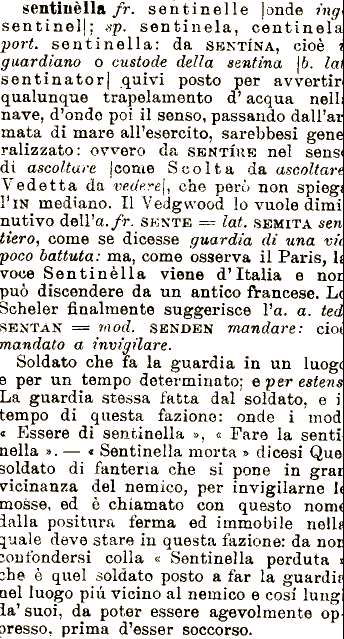 sentinèlla fr. sentinelle [onde ing
sentinel]; sp. sentinela, centinela
port. sentinella: da SENTÍNA, cioè i
guardiano o custode della sentina [b. lat
sentinator] quivi posto per avvertir
qualunque trapelamento d'acqua nell
nave, d'onde poi il senso, passando dall'ar
mata di mare all'esercito, sarebbesi gene
ralizzato: ovvero da SENTÍRE nel sens
di ascoltare [come Scolta da ascoltare
Vedetta da vedere], che però non spieg
l'IN mediano. Il Vedgwood lo vuole dimi
nutivo dell'a. fr. SENTE = lat. SEMITA sen
tiero, come se dicesse guardia di una via
poco battuta: ma, come osserva il Paris, la
voce Sentinèlla viene d'Italia e non
può discendere da un antico francese. Lo
Scheler finalmente suggerisce l'a. a. ted
SENTAN = mod. SENDEN mandare: cioè
mandato a invigilare.
Soldato che fa la guardia in un luogo
e per un tempo determinato; e per estens
La guardia stessa fatta dal soldato, e i
tempo di questa fazione: onde i mod
« Essere di sentinella », « Fare la senti
nella ». — « Sentinella morta » dicesi Que
soldato di fanteria che si pone in gran
vicinanza del nemico, per invigilarne le
mosse, ed è chiamato con questo nome
dalla positura ferma ed immobile nella
quale deve stare in questa fazione: da non
confondersi colla « Sentinella perduta »
che è quel soldato posto a far la guardia
nel luogo più vicino al nemico e così lungi
da' suoi, da poter essere agevolmente op
presso, prima d'esser soccorso.